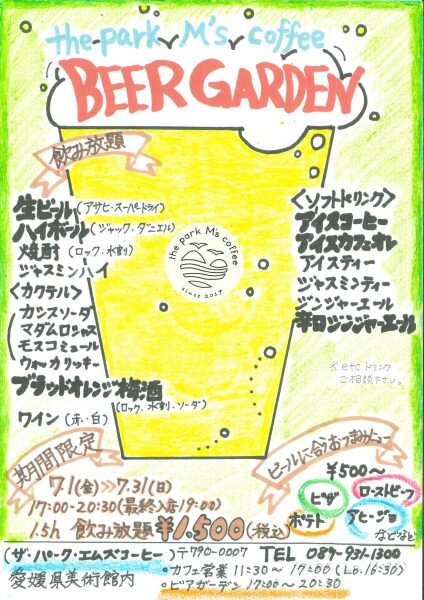 the park M's coffee
BEER GARDEN
飲み放題
生ビール(アサヒ・スーパードライ)
ハイボール(ジャック・ダニエル)
焼酎(ロック、水割)
ジャスミンハイ
<カクテル>
カシスソーダ
マダムロシャス
モスコミュール
ウォッカリッキー
ブラッドオレンジ梅酒
(ロック、水割、ソーダ)
ワイン(赤・白)
the park M's coffee
since 2017
<ソフトドリンク>
アイスコーヒー
アイスカフェオレ
アイスティー
ジャスミンティー
ジンジャーエール
辛口ジンジャーエール
※etcドリンク
ご相談下さい。
期間限定
7.1(金)>>7.31(日)
17:00-20:30(最終入店19:00)
1.5h 飲み放題¥1,500(税込)
ビールに合うおつまみメニュー
¥500〜
ピザ
ローストビーフ
ポテト
アヒージョ
などなど
(ザ・パーク・エムズコーヒー)〒790-0007 TEL 089-931-1300
愛媛県美術館内
・カフェ営業 11:30〜17:00(Lo.16:30)
・ビアガーデン 17:00〜20:30